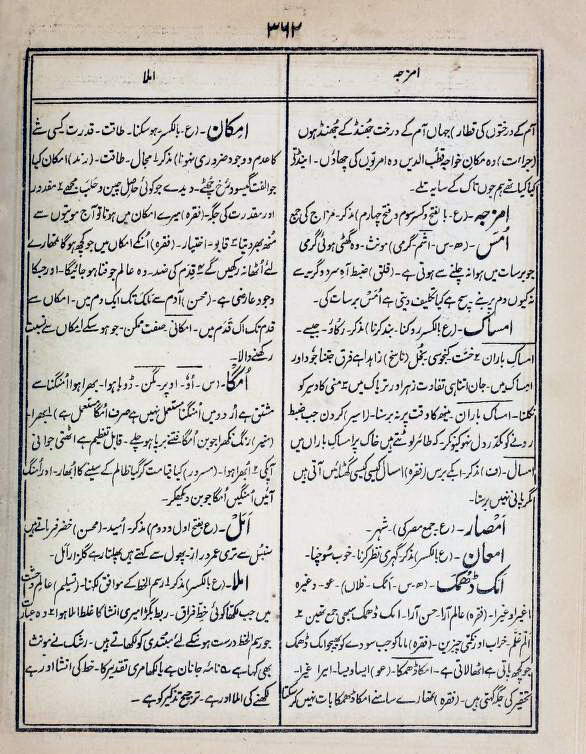 ۳۶۲
امزجہ
املا
آم کے درختوں کی قطار) جہاں آم کے درخت جھنڈ کے جھنڈ ہوں
(جرأت) وہ مکان خواجہ قطب الدیں وہ امرتوں کی چھاؤں -
کیا کیا تھے ہم جوں تاک کے سایہ تلے -
امزجہ - (ع - بالفتح وکسر سوم و فتح چہارم) مذکر - مزاج کی جمع
اُمَس - (ھ - س - گرمی) مونث - وہ گھٹی ہوئی گرمی
جو برسات میں ہوا نہ چلنے سے ہوتی ہے - (قلق) ضبطِ آہِ سرد و گریہ سے
نہ کیوں دم پر بنے سچ ہے کیا تکلیف دیتی ہے اُمس برسات کی -
امساک - (ع - بالکسر - روکنا - بند کرنا) مذکر - جیسے -
امساکِ باراں ۲ خست کنجوسی بخل (ناسخ) زاہدا ہے فرق جتنا جود اور
امساک میں - جان اتنا ہی تفاوت زہر اور تریاک میں ۳ منی کا دیر کو
نکلنا - امساکِ باراں - مینھ کا وقت پر نہ برسنا - (اسیر) کر دن جب ضبط
رونے کو مکدر دل نہو کیونکر - کہ طائر لوٹتے ہیں خاک پر امساکِ باراں میں
امسال - (ف) مذکر - ابکے برس (فقرہ) امسال کیسی کیسی گھٹائیں آتی ہیں
مگر پانی نہیں برستا -
امصار - (ع - جمع مصر کی) شہر -
امعان - (ع - بالکسر) مذکر گہری نظر کرنا - خوب سوچنا -
امک ڈھمک - (ھ - س - امک - فلاں) - عو - وغیرہ
ایرا غیرا - (فقرہ) عالم آرا حسن آرا - امک ڈھمک سبھی جمع تھیں ۲
الم غلم - خراب اور نکمی چیزیں - (فقرہ) ماما کو جب سودے کو بھیجو امک ڈھمک
جو کچھ پاتی ہے اٹھا لاتی ہے - امکا ڈھمکا - (عو) ایسا ویسا - ایرا غیرا -
تحقیر کی جگہ کہتی ہیں - (فقرہ) تمھارے سامنے امکا ڈھمکا بات نہیں کر سکتا
امکان - (ع - بالکسر - ہو سکنا - طاقت - قدرت کیسی شے
کا عدم و وجود ضروری نہونا) مذکر ۱ مجال - طاقت - (رند) امکان کیا
جو الفتِ گیسو و رخ چھٹے - دیدے جو کوئی حاصلِ چین و حلب مجھے ۲ مقدور
اور مقدرت کی جگہ - (فقرہ) میرے امکان میں ہوتا تو آج موتیوں سے
منھ بھر دیتا ۳ قابو - اختیار - (فقرہ) اُنکے امکان میں جو کچھ ہوگا تمھارے
لئے اُٹھا نہ رکھیں گے ۴ قِدَم کی ضد - وہ عالم جو فنا ہو جائیگا - اور جسکا
وجود عارضی ہے - (محسن) آدم سے ملک تک ایک دم میں - امکاں سے
قدم تک اک قدم میں - امکانی - صفت ممکن - جو ہو سکے امکان سے نسبت
رکھنے والا -
اُمگا - (س - اُو - اوپر - مگن - ڈوبا ہوا - بھرا ہوا اُمنگنا سے
مشتق ہے اردو میں اُمگنا مستعمل نہیں ہے صرف اُمگا مستعمل ہے) ۱ بھرا -
(منیر) رنگ نکھرا جوبن اُمگا فتنے برپا ہو چلے - قابلِ تعظیم ہے اٹھتی جوانی
آپکی ۲ ابھرا ہوا - (مسرور) کیا قیامت کر گیا ظالم کے سینے کا اُبھار - اور اُمنگ
آئیں اُمنگیں اُمگا جوبن دیکھکر -
اَمَل - (ع بفتح اول و دوم) مذکر - اُمید - (محسن) خضر فرماتے ہیں
سنبل سے تری عمر دراز - پھول سے کہتے ہیں پھلتا رہے گلزارِ امل -
املا - (ع بالکسر) مذکر ۱ رسم الخط کے موافق لکھنا - (تسلیم) عالمِ وحشت
میں جب لکھتا کوئی خطِ فراق - ربط بگڑا میری انشا کا غلط املا ہوا ۲ وہ عبارت
جو رسم الخط درست ہونے کے لئے مبتدی کو لکھاتے ہیں - رشک نے مونث
بھی کہا ہے ۵ نامۂ جانان ہے یا لکھا مری تقدیر کا - خط کی انشا اور ہے
لکھنے کی املا اور ہے - ترجیح تذکیر کو ہے -